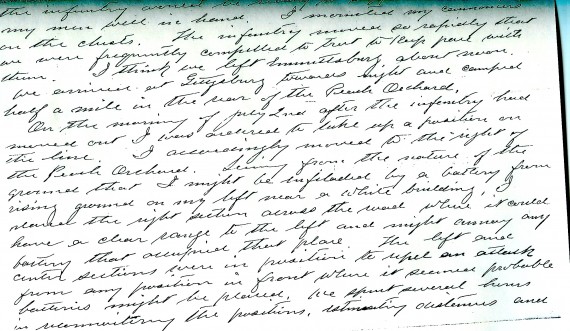 the infantry
my men well in hand. I mounted my cannoneers
on the chests. The infantry moved so rapidly that
we were frequently compelled to trot to keep pace with
them. I think we left Emmittsburg about noon.
We arrived at Gettysburg towards night and camped
half a mile in the rear of the Peach Orchard.
On the morning of July 2nd after the infantry had
moved out I was ordered to take up a position on
the line. I accordingly moved to the right of
the Peach Orchard. Seeing from the nature of the
ground that I might be enfiladed by a battery from
rising ground on my left near a white building, I
placed the right section across the road where it could
have a clear range to the left and might annoy any
battery that occupied that place. The left and
center sections were in position to repel an attack
from any position in front where it seemed probable
batteries might be placed. We spent several hours
in reconnoitering the positions, estimating distances and